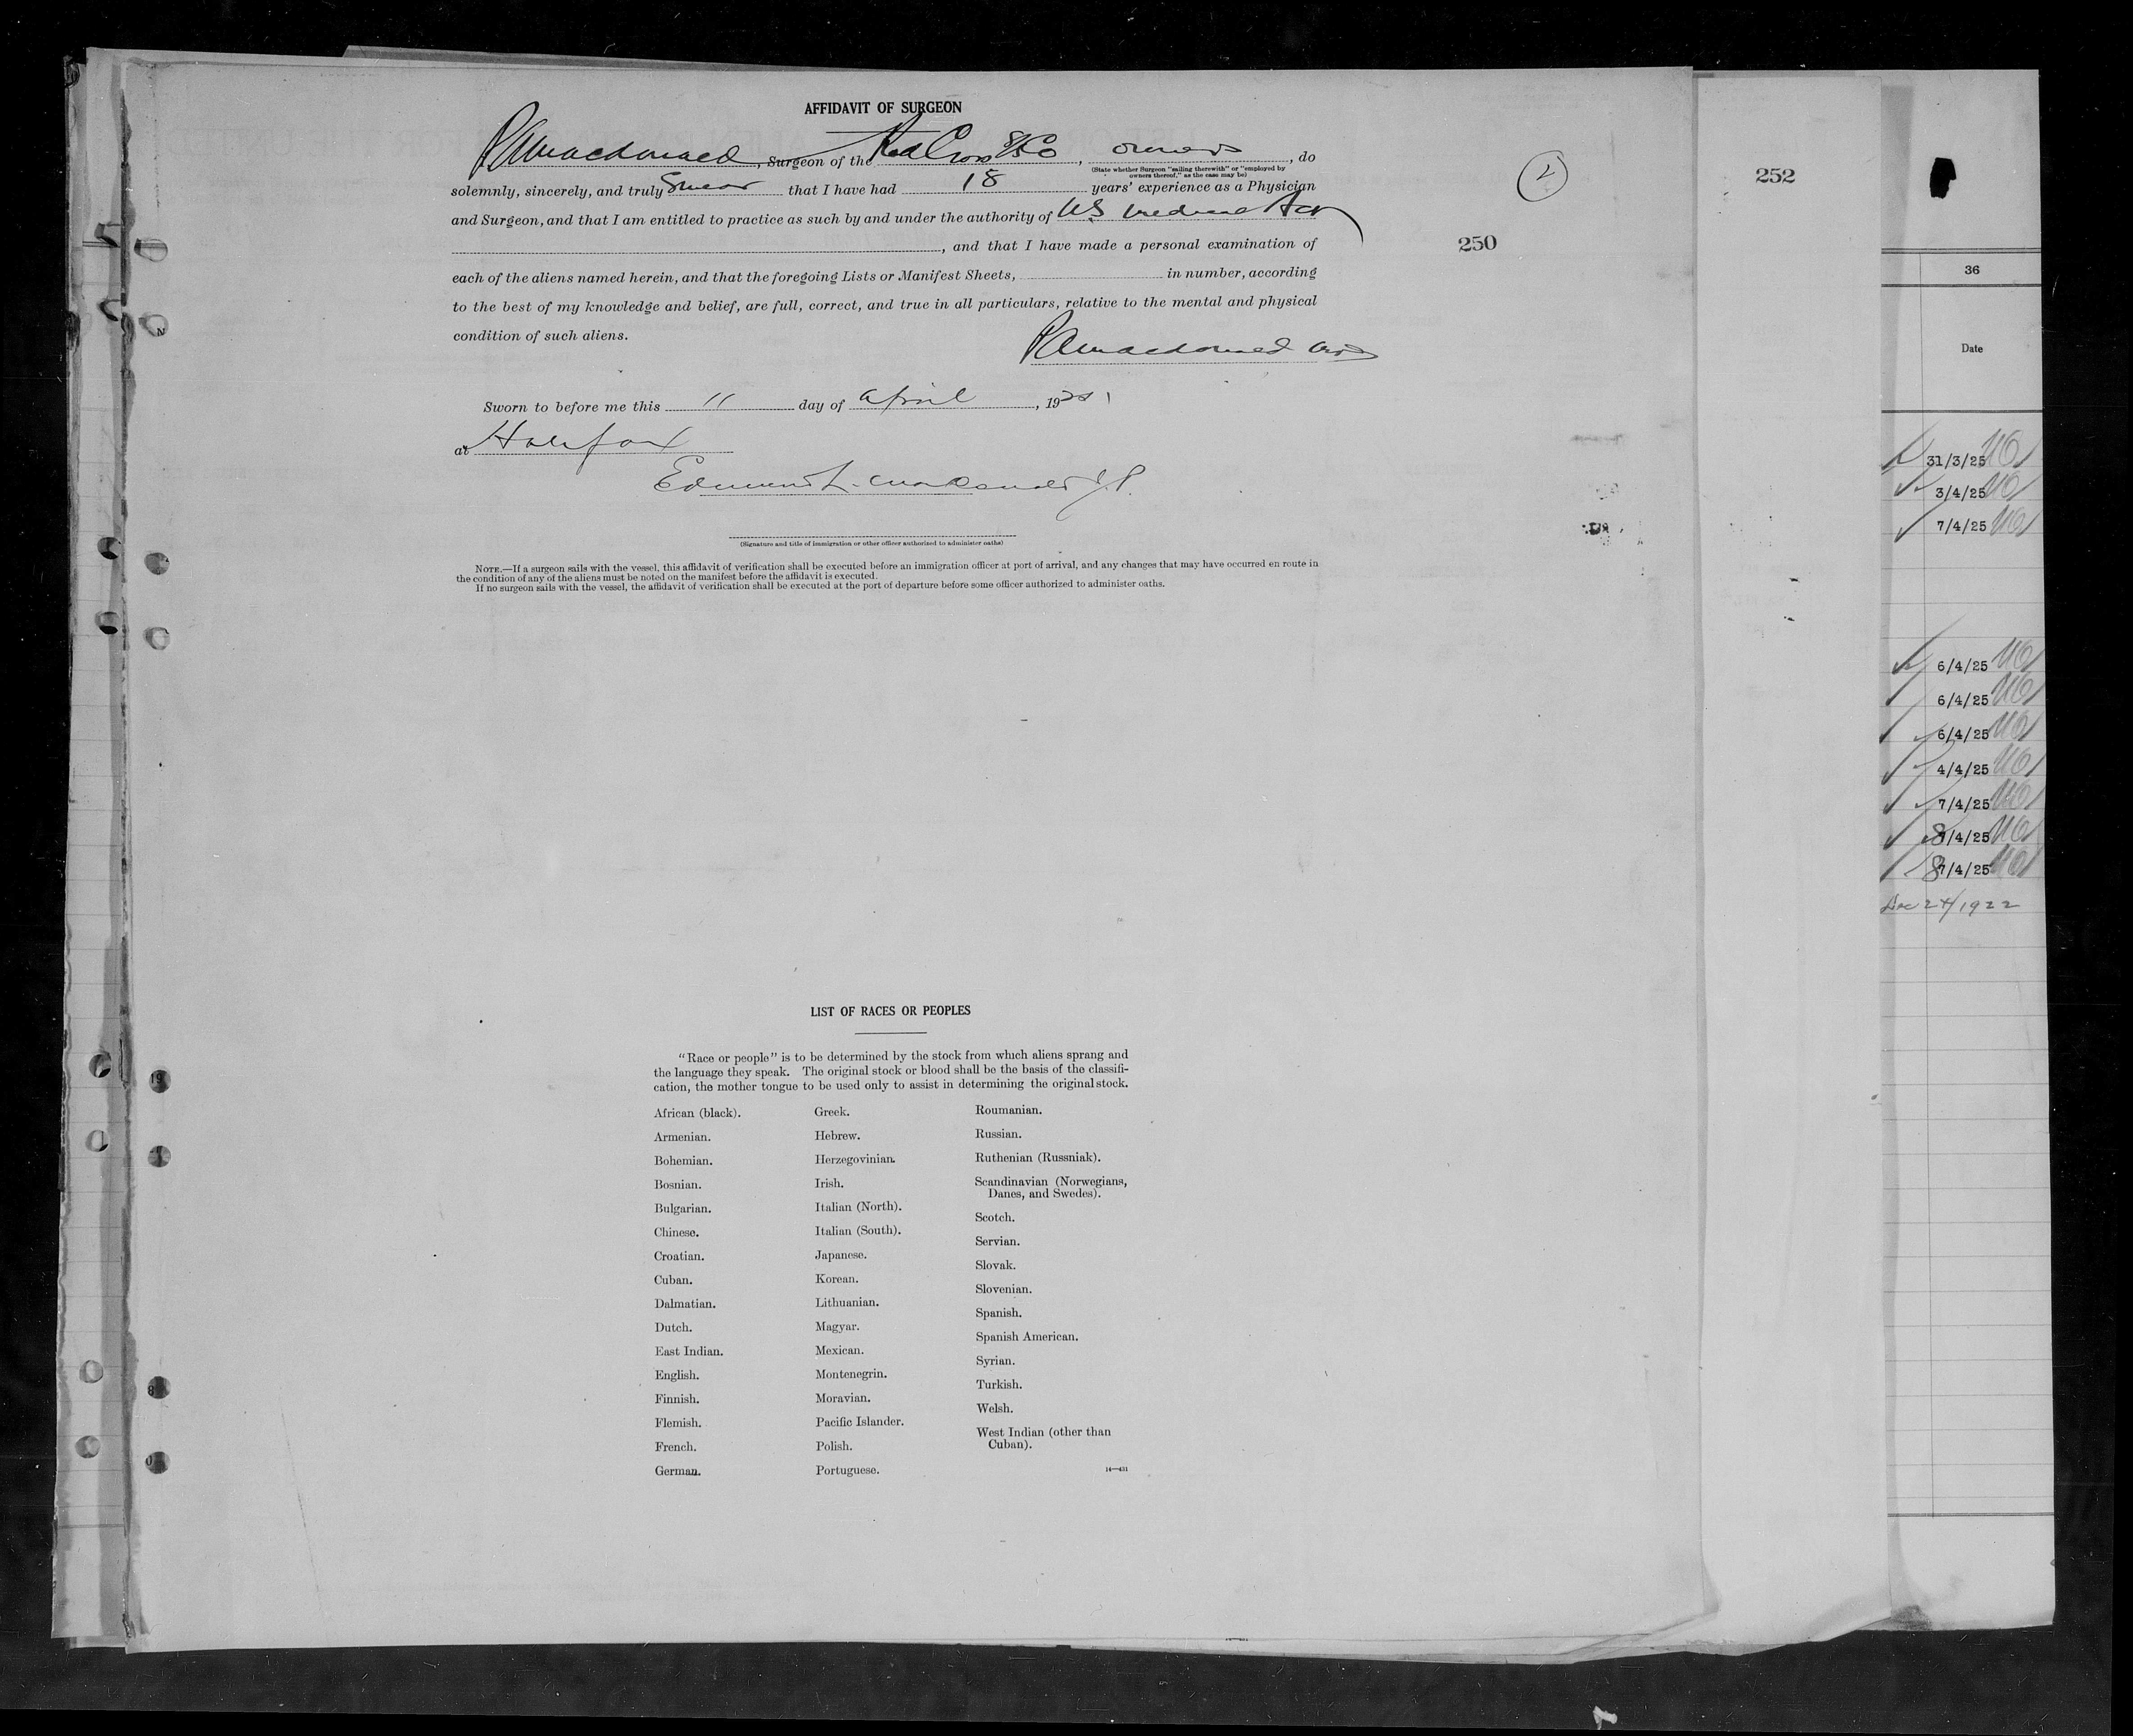 AFFIDAVIT OF SURGEON
Macdonald, Surgeon of the Red Cross SS Co, owners, do
(State whether Surgeon "sailing therewith" or "employed by
owners thereof," as the case may be)
solemnly, sincerely, and truly Swear that I have had 18 years' experience as a Physician
and Surgeon, and that I am entitled to practice as such by and under the authority of NS Medical Act
, and that I have made a personal examination of
each of the aliens named herein, and that the foregoing Lists or Manifest Sheets, in number, according
to the best of my knowledge and belief, are full, correct, and true in all particulars, relative to the mental and physical
condition of such aliens.
Macdonald
Sworn to before me this 11 day of April, 19
at Halifax
J.P.
(Signature and title of immigration or other officer authorized to administer oaths)
NOTE.—If a surgeon sails with the vessel, this affidavit of verification shall be executed before an immigration officer at port of arrival, and any changes that may have occurred en route in
the condition of any of the aliens must be noted on the manifest before the affidavit is executed.
If no surgeon sails with the vessel, the affidavit of verification shall be executed at the port of departure before some officer authorized to administer oaths.
2
250
LIST OF RACES OR PEOPLES
"Race or people" is to be determined by the stock from which aliens sprang and
the language they speak. The original stock or blood shall be the basis of the classifi-
cation, the mother tongue to be used only to assist in determining the original stock.
African (black).
Armenian.
Bohemian.
Bosnian.
Bulgarian.
Chinese.
Croatian.
Cuban.
Dalmatian.
Dutch.
East Indian.
English.
Finnish.
Flemish.
French.
German.
Greek.
Hebrew.
Herzegovinian.
Irish.
Italian (North).
Italian (South).
Japanese.
Korean.
Lithuanian.
Magyar.
Mexican.
Montenegrin.
Moravian.
Pacific Islander.
Polish.
Portuguese.
Roumanian.
Russian.
Ruthenian (Russniak).
Scandinavian (Norwegians,
Danes, and Swedes).
Scotch.
Servian.
Slovak.
Slovenian.
Spanish.
Spanish American.
Syrian.
Turkish.
Welsh.
West Indian (other than
Cuban).
14—431
252
36
Date
31/3/25
3/4/25
7/4/25
6/4/25
6/4/25
6/4/25
4/4/25
7/4/25
8/4/25
8/4/25
Dec 24/1922